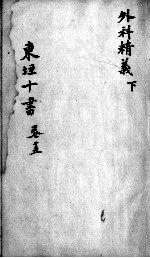 外科精義 下
東垣十書 卷五